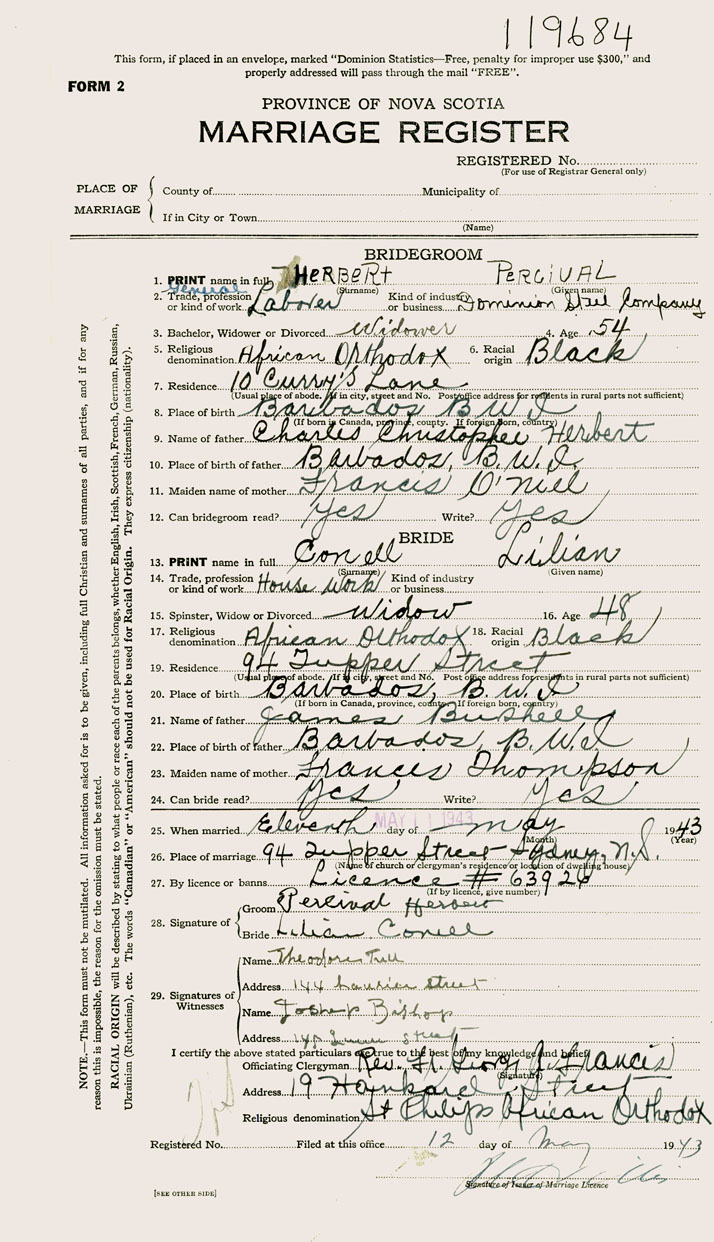 119684
This form, if placed in an envelope, marked "Dominion Statistics—Free, penalty for improper use $300," and
properly addressed will pass through the mail "FREE".
FORM 2
PROVINCE OF NOVA SCOTIA
MARRIAGE REGISTER
REGISTERED No.
(For use of Registrar General only)
PLACE OF MARRIAGE
County of Municipality of
If in City or Town
(Name)
BRIDEGROOM
1. PRINT name in full HERBERT PERCIVAL
(Surname) (Given name)
General
2. Trade, profession or kind of work Laborer Kind of industry or business Dominion Steel Company
3. Bachelor, Widower or Divorced Widower 4. Age 54
5. Religious denomination African Orthodox 6. Racial origin Black
7. Residence 10 Curry's Lane
(Usual place of abode. If in city, street and No. Post office address for residents in rural parts not sufficient)
8. Place of birth Barbados B.W.I
(If born in Canada, province, county. If foreign born, country)
9. Name of father Charles Christopher Herbert
10. Place of birth of father Barbados, B.W.I.
11. Maiden name of mother Francis O'Niel
12. Can bridegroom read? Yes Write? Yes
BRIDE
13. PRINT name in full Conell Lilian
(Surname) (Given name)
14. Trade, profession or kind of work House Work Kind of industry or business
15. Spinster, Widow or Divorced Widow 16. Age 48
17. Religious denomination African Orthodox 18. Racial origin Black
19. Residence 94 Tupper Street
(Usual place of abode. If in city, street and No. Post office address for residents in rural parts not sufficient)
20. Place of birth Barbados, B.W.I
(If born in Canada, province, county. If foreign born, country)
21. Name of father James Bushell
22. Place of birth of father Barbados, B.W.I
23. Maiden name of mother Francis Thompson
24. Can bride read? Yes Write? Yes
MAY 11 1943
25. When married Eleventh day of May 1943
(Month) (Year)
26. Place of marriage 94 Tupper Street Sydney, N.S.
(Name of church or clergyman's residence or location of dwelling house)
27. By licence or banns Licence # 63926
(If by licence, give number)
28. Signature of
Groom Percival Herbert
Bride Lilian Conell
29. Signatures of Witnesses
Name Theodore Tull
Address 144 Laurier street
Name Joshep Bishop
Address street
I certify the above stated particulars are true to the best of my knowledge and belief
Officiating Clergyman Rev. Fr. Georg A. Francis
(Signature)
Address 19 Hankard Street
Religious denomination St Philips African Orthodox
Registered No. Filed at this office 12 day of May 1943
Signature of Issuer of Marriage Licence
[SEE OTHER SIDE]
NOTE.—This form must not be mutilated. All information asked for is to be given, including full Christian and surnames of all parties, and if for any
reason this is impossible, the reason for the omission must be stated.
RACIAL ORIGIN will be described by stating to what people or race each of the parents belongs, whether English, Irish, Scottish, French, German, Russian,
Ukrainian (Ruthenian), etc. The words "Canadian" or "American" should not be used for Racial Origin. They express citizenship (nationality).